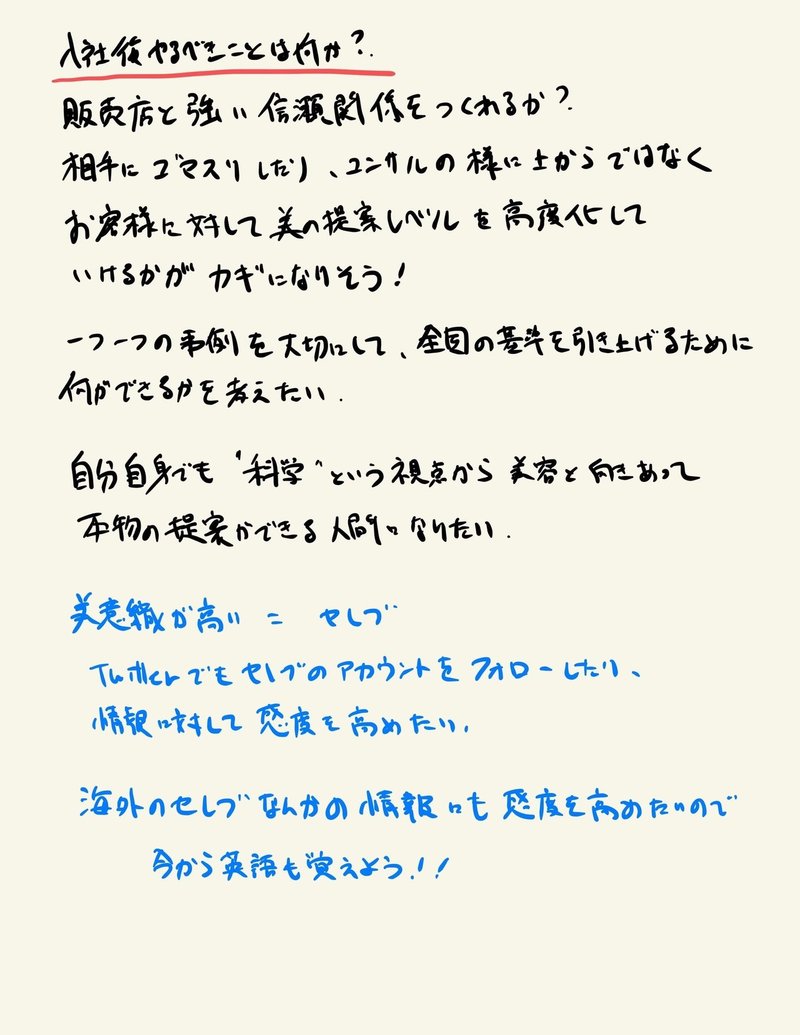 入社後やるべきことは何か?
販売店と強い信頼関係をつくれるか?
相手にゴマスリしたり、コンサルの様に上からではなく
お客様に対して美の提案レベルを高度化して
いけるかがカギになりそう!
一つ一つの事例を大切にして、全国の基準を引き上げるために
何ができるかを考えたい.
自分自身でも"科学"という視点から美容と向きあって
本物の提案ができる人間になりたい.
美意識が高い = セレブ
Twitterでもセレブのアカウントをフォローしたり、
情報に対して感度を高めたい.
海外のセレブなんかの情報にも感度を高めたいので
今から英語も覚えよう!!